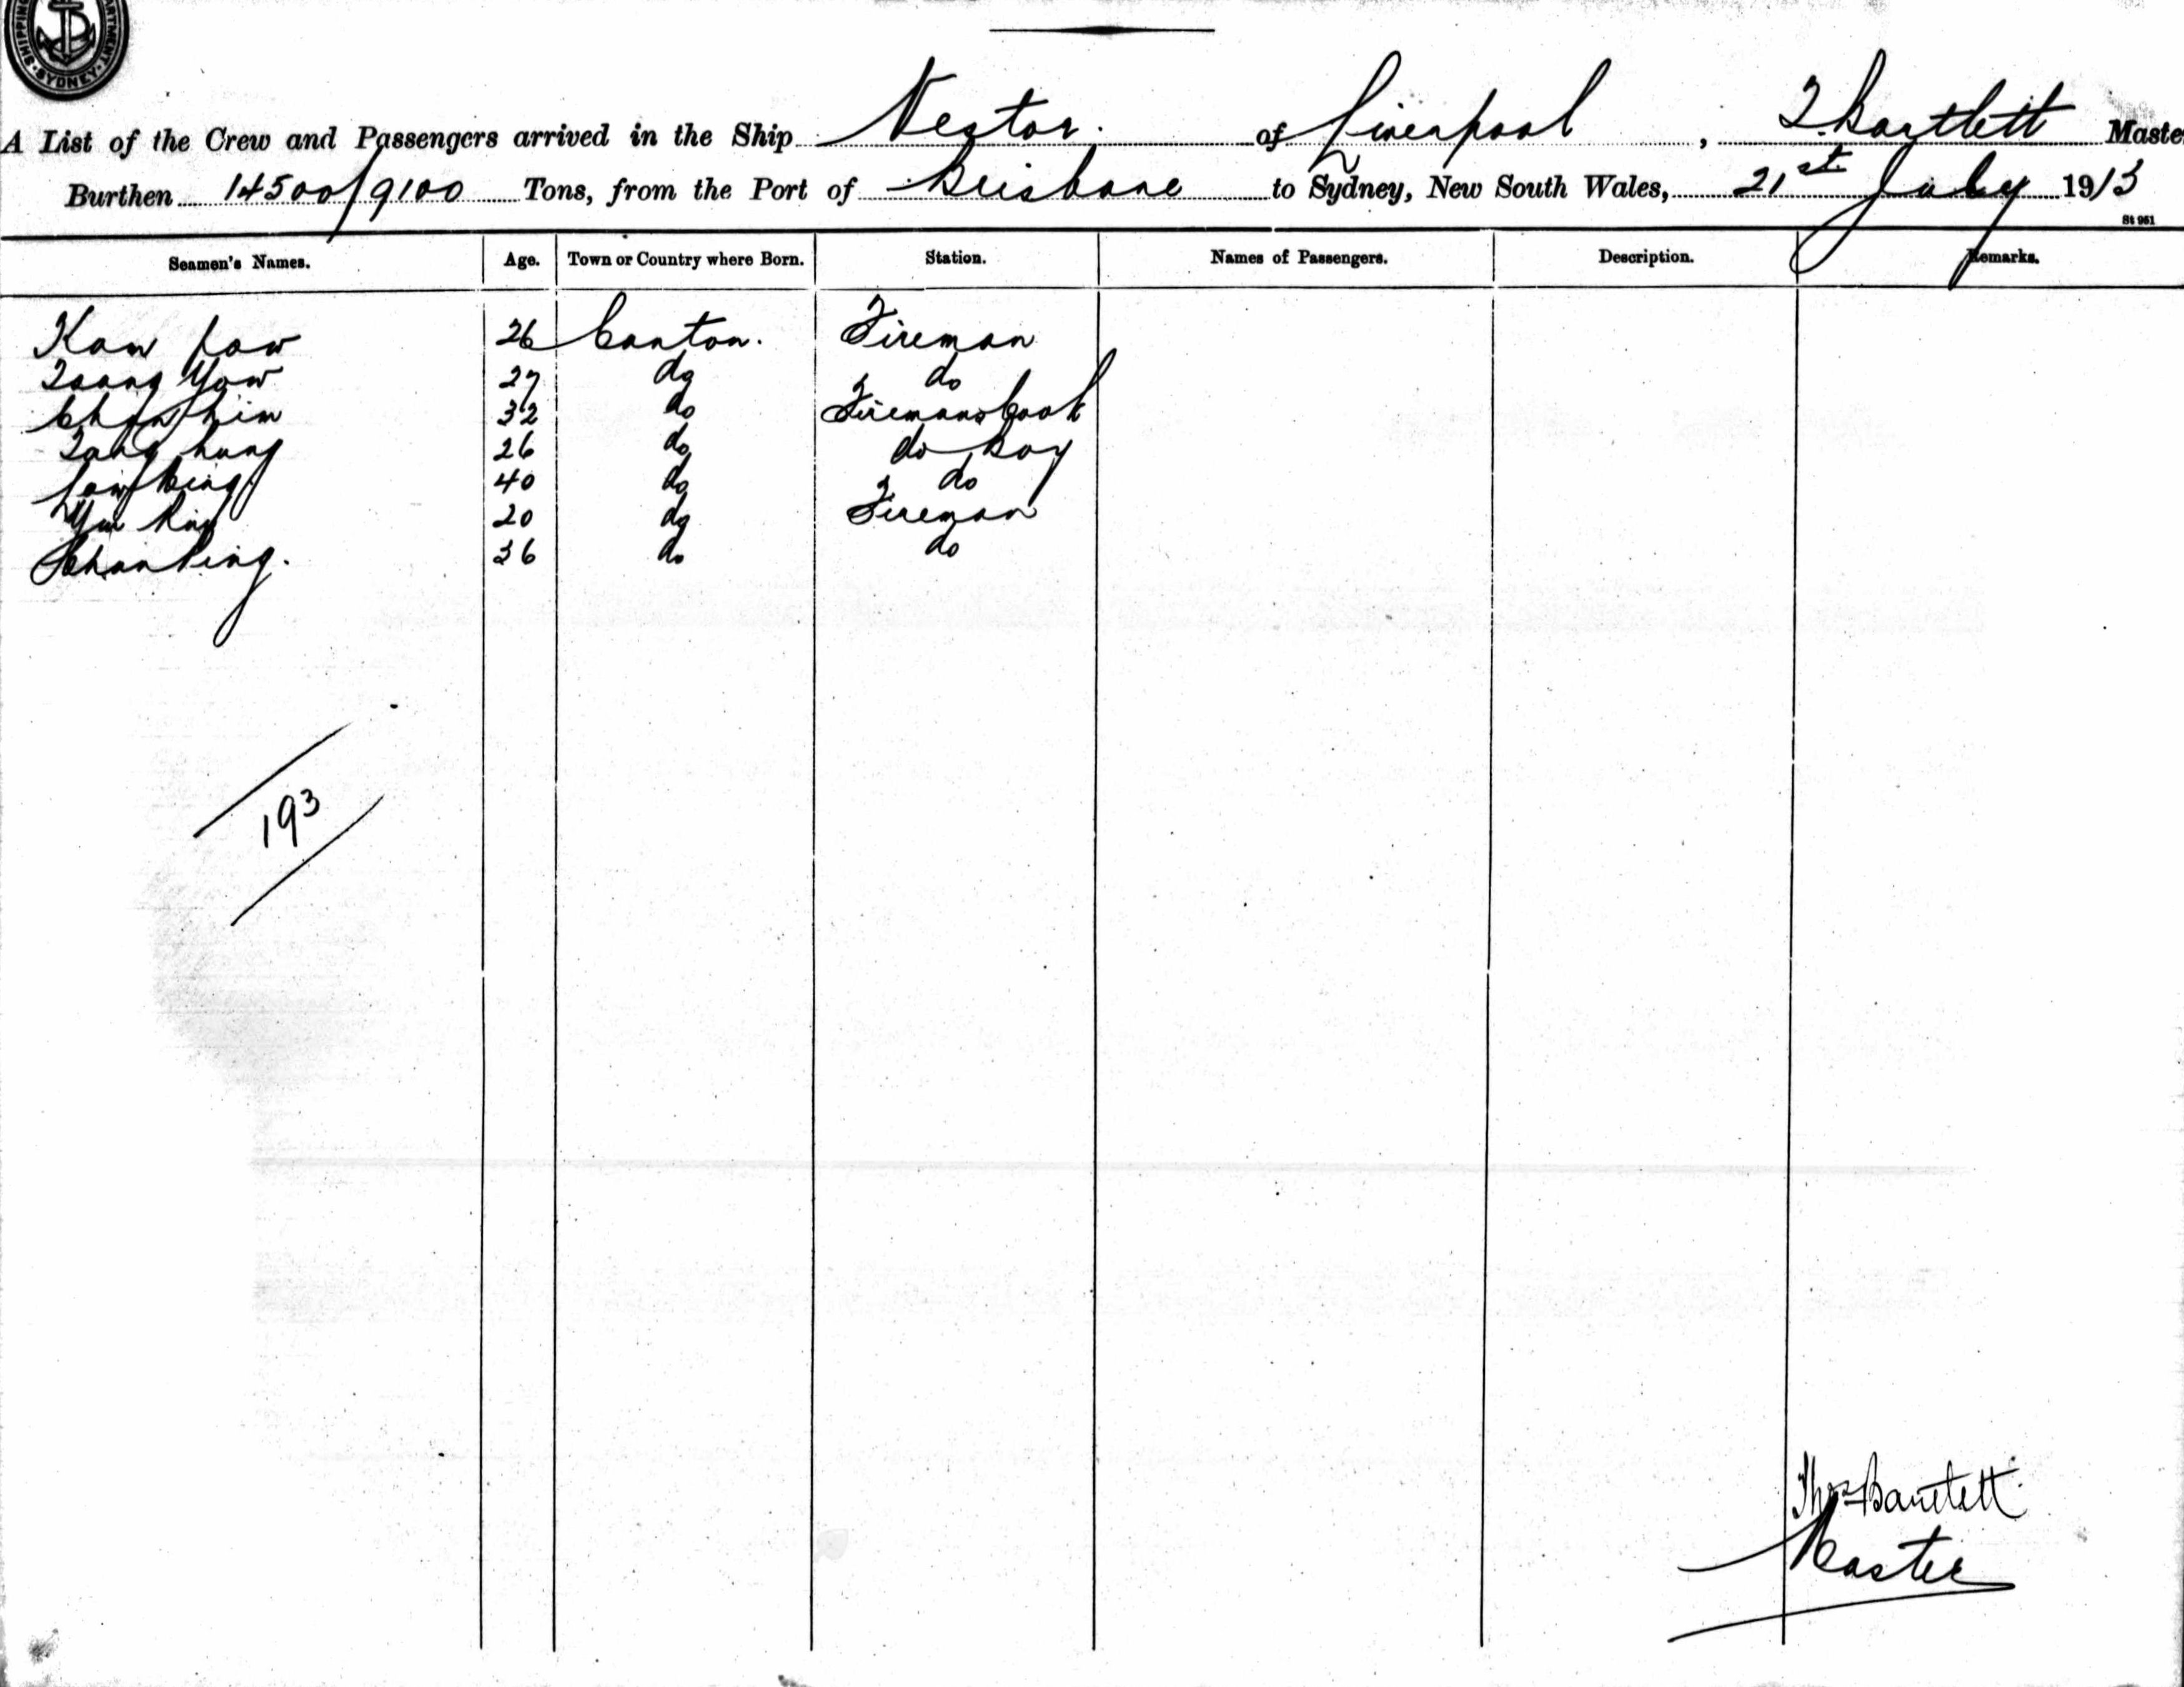 SHIPPING
SYDNEY
A List of the Crew and Passengers arrived in the Ship Nestor. of Liverpool, T. Bartlett Maste
Burthen 14500/9100 Tons, from the Port of Brisbane to Sydney, New South Wales, 21st July 1913
St 951
Seamen's Names. Age. Town or Country where Born. Station. Names of Passengers. Description. Remarks.
Kow Low 26 Canton. Fireman
Yow 27 do do
32 do Firemans Cook
26 do do Boy
40 do do
20 do Fireman
36 do do
193
Thos Bartlett
Master